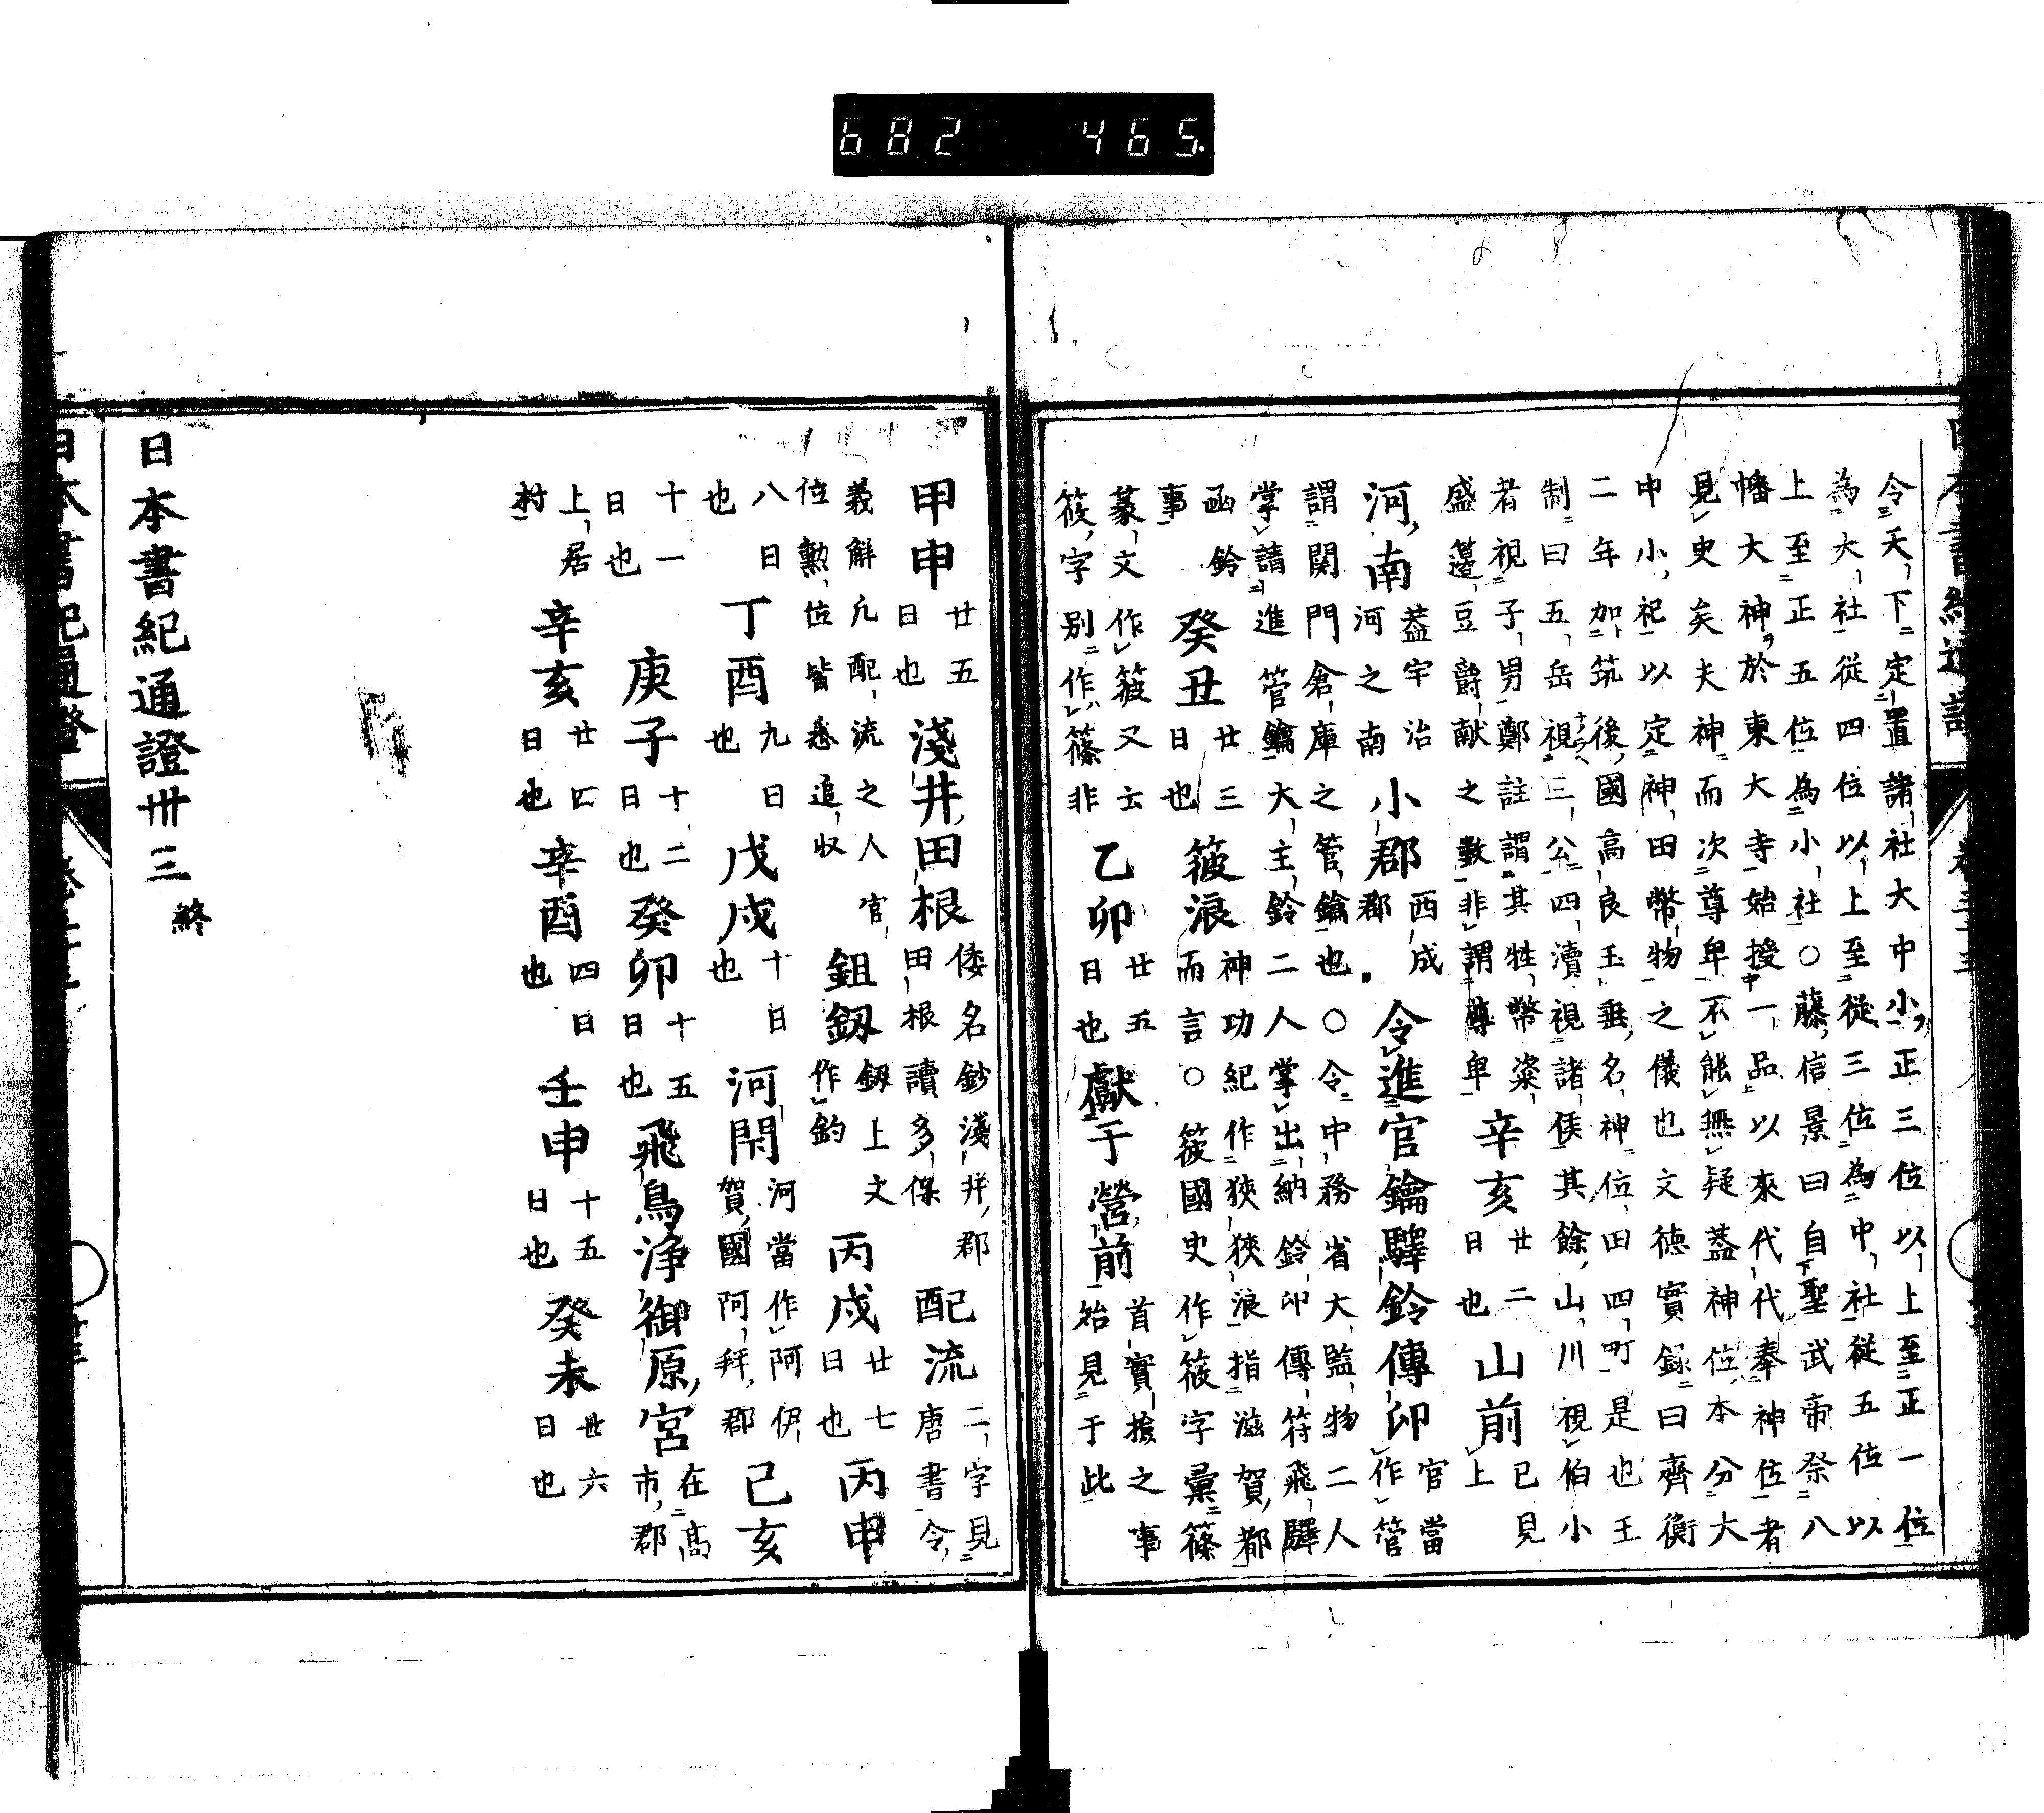 令天下定置諸社大中小正三位以上至正一位
為大社從四位以上至從三位為中社從五位以
上至正五位為小社○藤信景曰自聖武帝祭八
幡大神於東大寺始授一品以來代代奉神位者
見史矣夫神而次尊卑不能無疑蓋神位本分大
中小祀以定神田幣物之儀也文德實錄曰齊衡
二年加筑後國高良玉垂名神位田四町是也王
制曰五岳視三公四瀆視諸侯其餘山川視伯小
者視子男鄭註謂其牲幣粢盛籩豆爵献之數非謂尊卑 辛亥 廿二日也 山前 已見上
河南 蓋宇治河之南 小郡 西成郡 令進官鑰驛鈴傳印 官當作管
謂関門倉庫之管鑰也○令中務省大監物二人
掌請進管鑰大主鈴二人掌出納鈴印傳符飛驛
函鈴事 癸丑 廿三日也 筱浪 神功紀作狹狹浪指滋賀都而言○筱國史作筱字彙篠
篆文作筱又云筱字別作篠非 乙卯 廿五日也 獻于營前 首實撿之事始見于此
甲申 廿五日也 淺井田根 倭名鈔淺井郡田根讀多保 配流 二字見唐書令
義解凡配流之人官位勲位皆悉追収 鉏釼 釼上文作釣 丙戌 廿七日也 丙申
八日也 丁酉 九日也 戊戌 十日也 河閇 河當作阿伊賀國阿拜郡 己亥
十一日也 庚子 十二日也 癸卯 十五日也 飛鳥浄御原宮 在高市郡
上居村 辛亥 廿四日也 辛酉 四日也 壬申 十五日也 癸未 廿六日也
日本書紀通證卅三 終
682 465